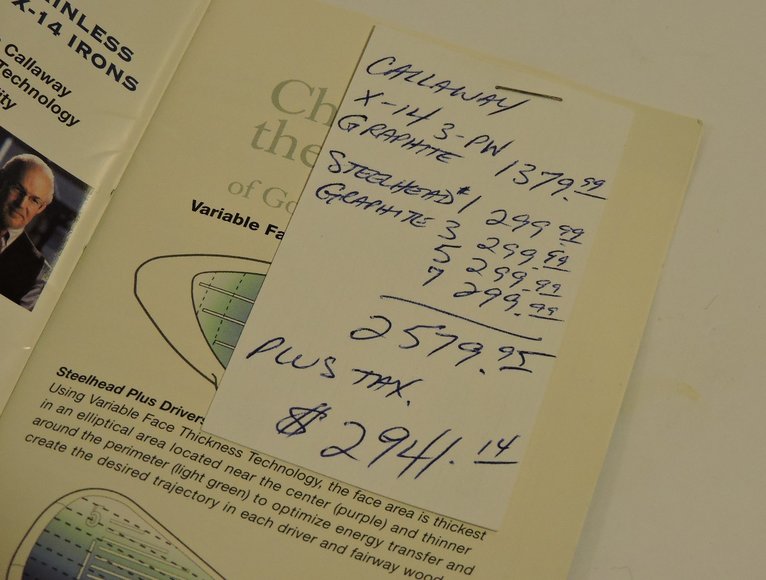 INLESS
X-14 IRONS
Callaway
Technology
ity
Ch
the
of Go
Variable Fa
CALLAWAY
X-14 3-PW
GRAPHITE 1379.99
STEELHEAD #1 299.99
GRAPHITE 3 299.99
5 299.99
7 299.99
2579.95
PLUS TAX.
$2941.14
Steelhead Plus Drivers
Using Variable Face Thickness Technology, the face area is thickest
in an elliptical area located near the center (purple) and thinner
around the perimeter (light green) to optimize energy transfer and
create the desired trajectory in each driver and fairway wood
5